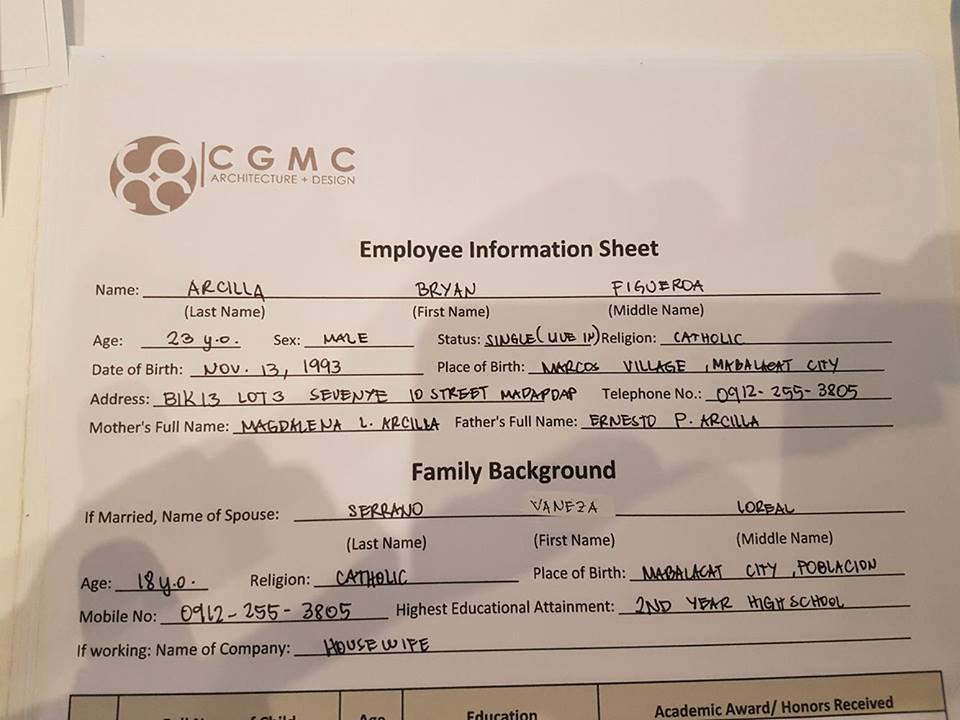 CGMC
ARCHITECTURE + DESIGN
Employee Information Sheet
Name: ARCILLA BRYAN FIGUEROA
(Last Name) (First Name) (Middle Name)
Age: 23 y.o. Sex: MALE Status: SINGLE (LIVE IN) Religion: CATHOLIC
Date of Birth: NOV. 13, 1993 Place of Birth: MARCOS VILLAGE, MABALACAT CITY
Address: BIK 13 LOT 3 SEVENYE 10 STREET MADAPDAP Telephone No.: 0912-255-3805
Mother's Full Name: MAGDALENA L. ARCILLA Father's Full Name: ERNESTO P. ARCILLA
Family Background
If Married, Name of Spouse: SERRANO VANEZA LOREAL
(Last Name) (First Name) (Middle Name)
Age: 18 y.o. Religion: CATHOLIC Place of Birth: MABALACAT CITY, POBLACION
Mobile No: 0912-255-3805 Highest Educational Attainment: 2ND YEAR HIGH SCHOOL
If working: Name of Company: HOUSEWIFE
Full Name of Child Age Education Academic Award/ Honors Received